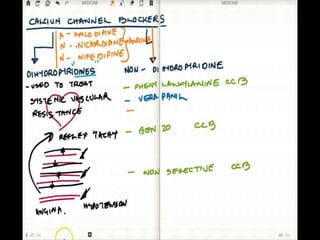 MEDICINE
MEDICINE
CALCIUM CHANNEL BLOCKERS
A - AMLODIPINE
N - NICARDIPINE
N - NIFEDIPINE
DIHYDROPIRIDINES
NON - DIHYDROPIRIDINE
- USED TO TREAT
SYSTEMIC VASCULAR
RESISTANCE
- PHENYLALKYLAMINE CCB
- VERAPAMIL
-
REFLEX TACHY
- BENZO CCB
- NON SELECTIVE CCB
ANGINA.
HYPOTENSION